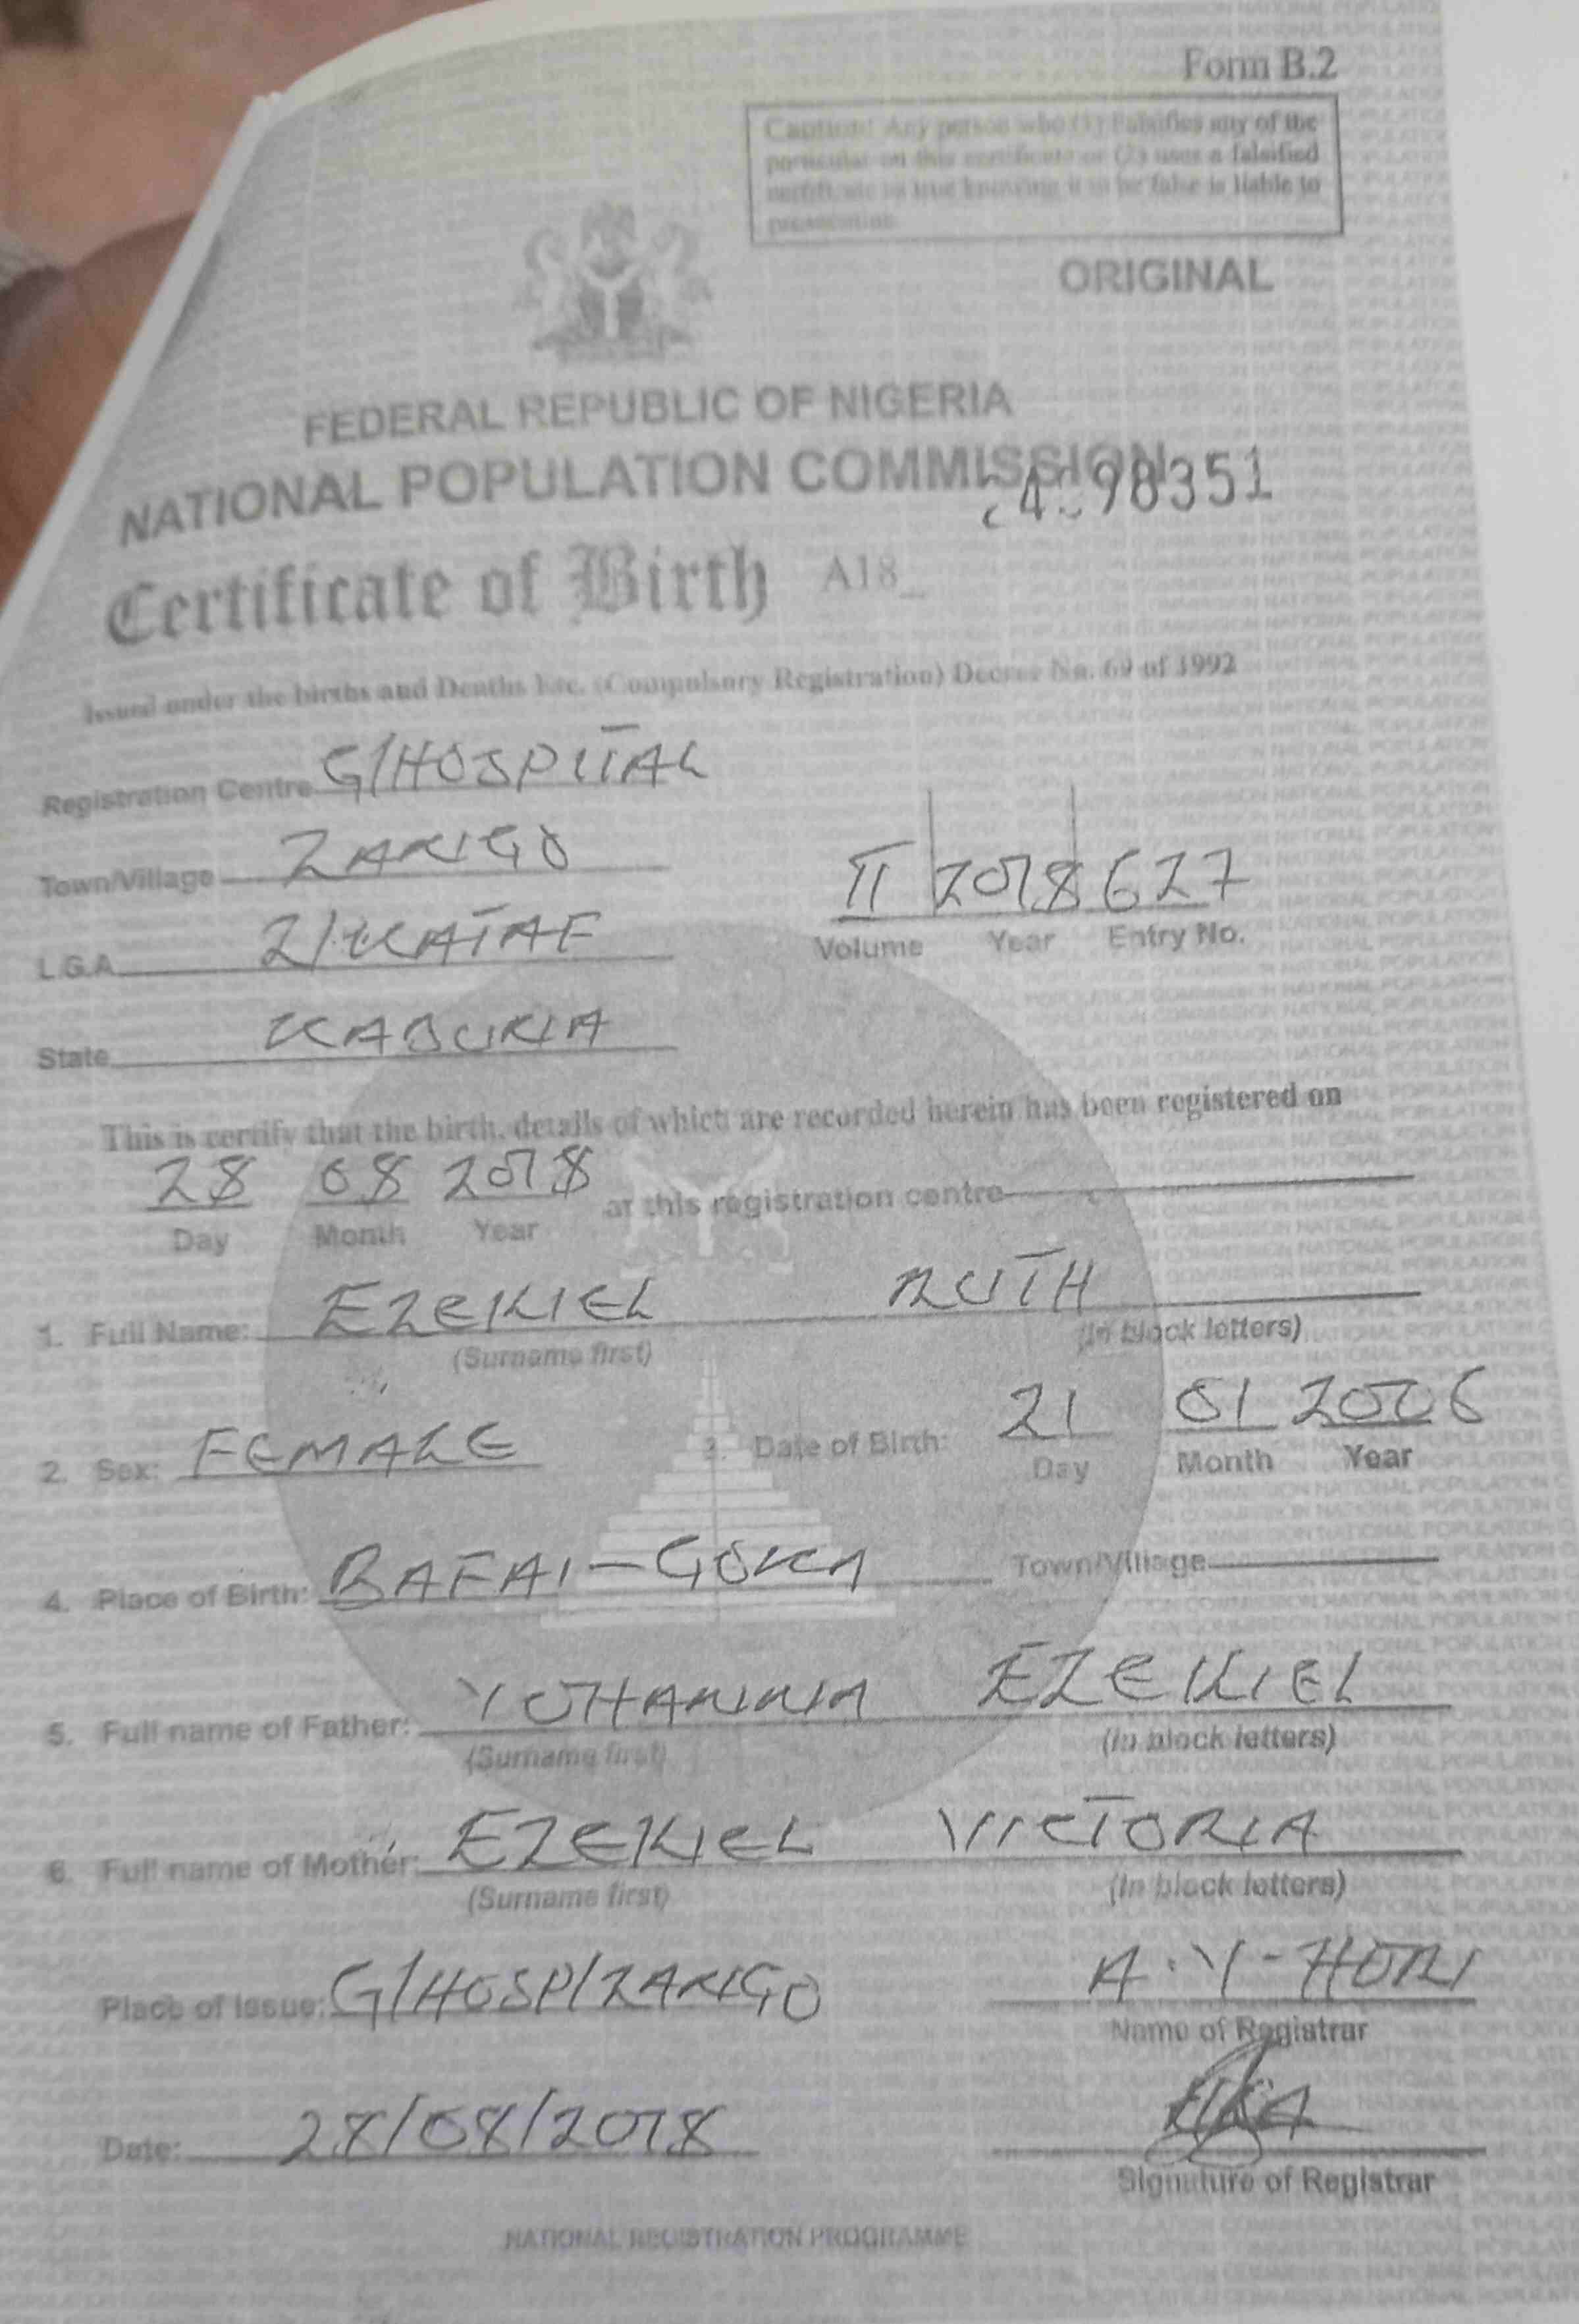 Form B.2
Caption! Any person who (1) Falsifies any of the
particular on this certificate or (2) uses a falsified
certificate as true knowing it to be false is liable to
prosecution
ORIGINAL
FEDERAL REPUBLIC OF NIGERIA
NATIONAL POPULATION COMMISSION
98351
Certificate of Birth A18_
Issued under the births and Deaths Etc. (Compulsory Registration) Decree No. 69 of 1992
Registration Centre G/HOSPITAL
Town/Village ZANGO
L.G.A Z/KATAF
II 2018 627
Volume Year Entry No.
State KADUNA
This is certify that the birth, details of which are recorded herein has been registered on
28 08 2018 at this registration centre
Day Month Year
1. Full Name: EZEKIEL RUTH
(Surname first) (In block letters)
2. Sex: FEMALE 3. Date of Birth: 21 01 2006
Day Month Year
4. Place of Birth: BAFAI-GORA Town/Village
5. Full name of Father: YOHANNA EZEKIEL
(Surname first) (In block letters)
6. Full name of Mother: EZEKIEL VICTORIA
(Surname first) (In block letters)
Place of Issue: G/HOSP/ZANGO A.Y-HORI
Name of Registrar
Date: 28/08/2018
Signature of Registrar
NATIONAL REGISTRATION PROGRAMME